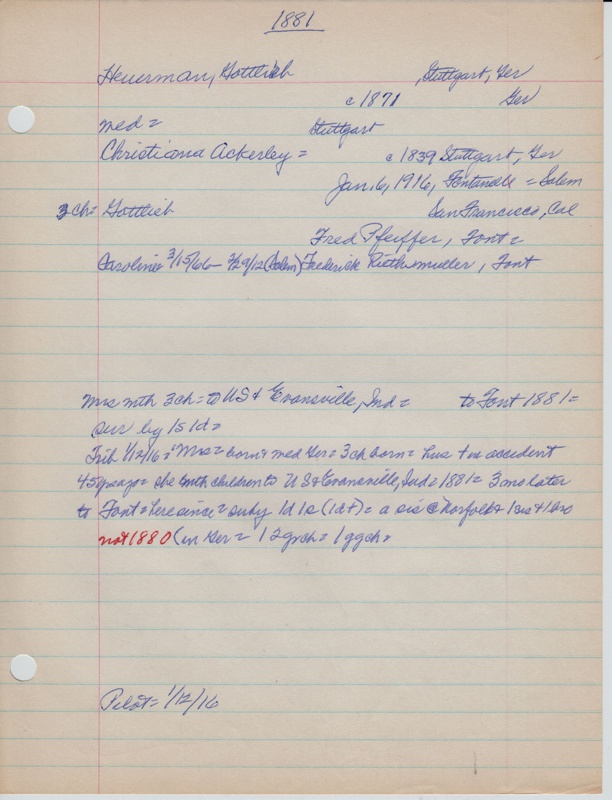 1881
Heuerman, Gottlieb , Stuttgart, Ger
c 1871 Ger
med = Stuttgart
Christiana Ackerley = c 1839 Stuttgart, Ger
Jan. 6, 1916, Fontanelle = Salem
3 ch = Gottlieb San Francisco, Cal
Fred Pfeiffer, Font =
Caroline 3/15/66 - 3/29/12 (Salem) Frederick Riethmuller, Font
Mrs with 3 ch = to US & Evansville, Ind = to Font 1881 =
sur by 1s 1d =
Trib 1/12/16 = "Mrs = born & med Ger = 3 ch born = hus + in accident
45 yrs ago = she with children to US & Evansville, Ind = 1881 = 3 mo later
to Font = here since = surby 1d 1s (1d+) = a sis @ Norfolk & 1 sis & 1 bro
not 1880 (in Ger = 12 grch = 1 ggch =
Pilot = 1/12/16